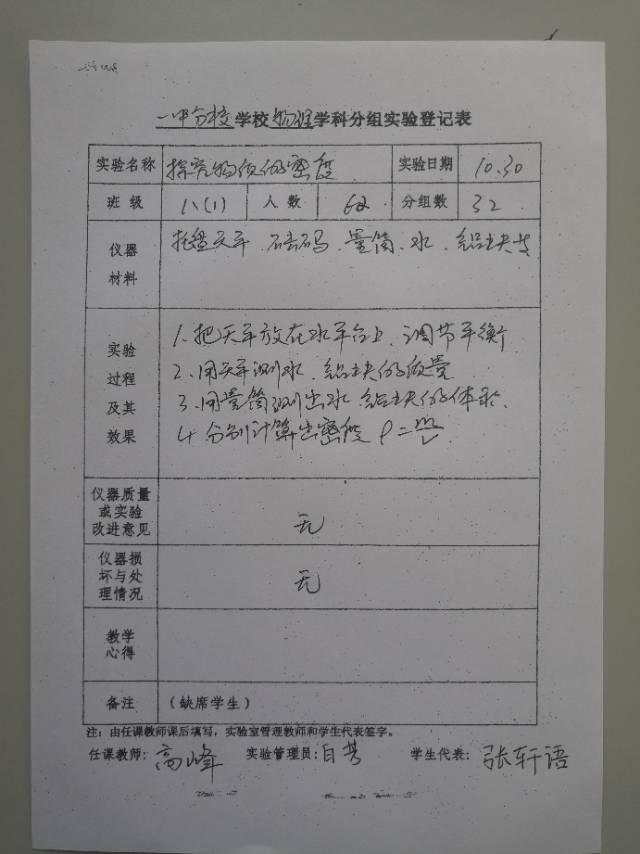 一中分校学校物理学科分组实验登记表
实验名称 探究物质的密度 实验日期 10.30
班 级 八(1) 人 数 62 分组数 32
仪器材料 托盘天平、砝码、量筒、水、铝块
实验过程及其效果
1、把天平放在水平台上,调节平衡
2、用天平测水、铝块的质量
3、用量筒测出水、铝块的体积、
4、分别计算出密度 ρ=m/V
仪器质量或实验改进意见 无
仪器损坏与处理情况 无
教学心得
备注 (缺席学生)
注:由任课教师课后填写,实验室管理教师和学生代表签字。
任课教师:高峰 实验管理员: 学生代表:张轩语